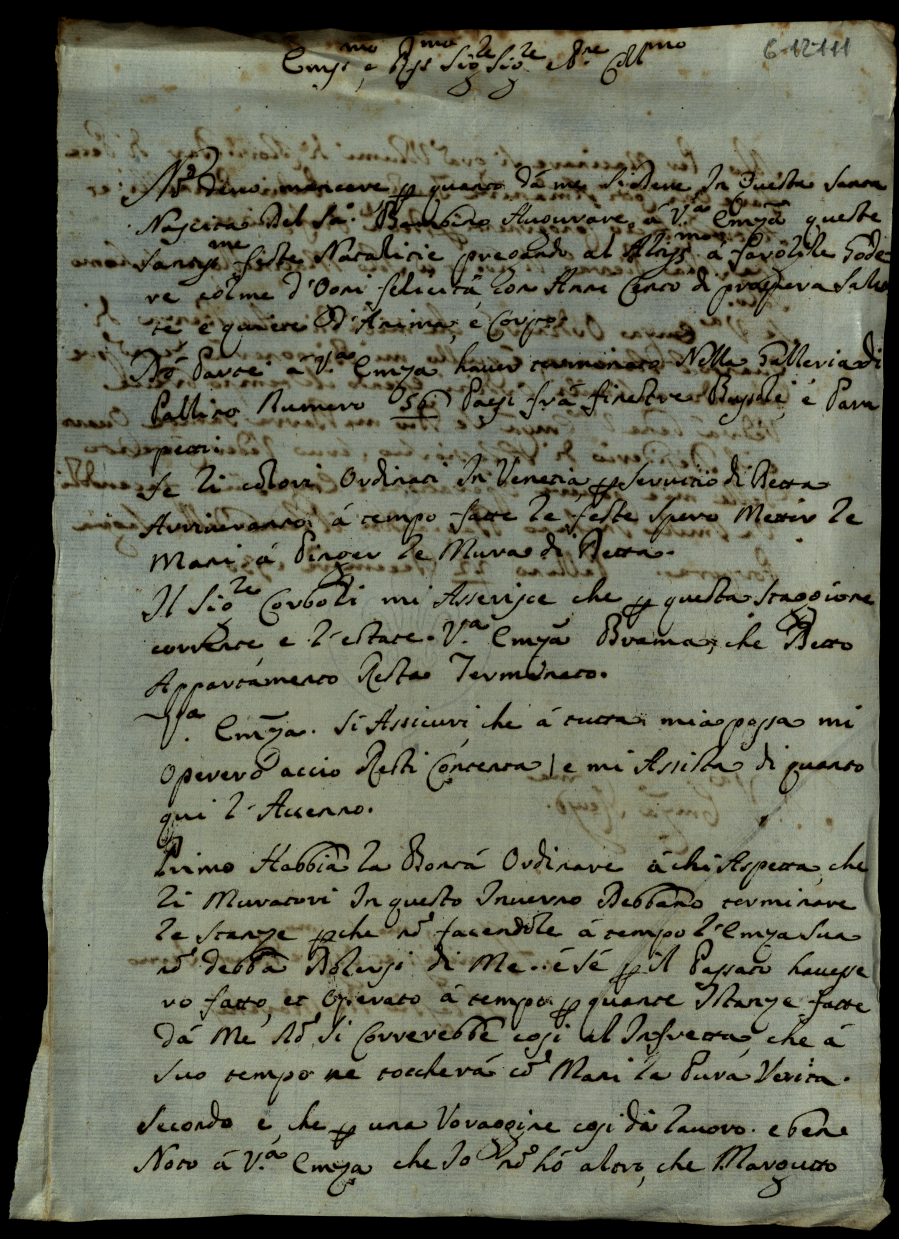 6-12111
Em.mo e R.mo Sig.re Sig.re e P.ne Coll.mo
No devo mancare p quanto dá me si deve In questa Santa
Nascita Del S.o Bambino Augurare á V.a Emza queste
Santiss.me feste Natalitie pregando al Altiss.mo á favolile Gode
re colme d'Ogni felicitá Con Anni Cento di prospera Salu
te e quiete D'Anima, é Corpo.
Dó Parte á V.a Emza haver terminato Nella Galleria di
Palliro Numero 56 Paesi frá finestre Bussole, é Para
petti
Se li colori Ordinati In Venetia, p Servitio di Detta
Arriveranno á tempo fatte le feste spero Metter le
Mani á Pinger le Mura di Detta.
Il Sig.re Corboli mi Asserisce che p questa Staggione
corrente e l'estate. V.a Emza Brama, che Detto
Appartamento Resta Terminato.
V.a Emza. Si Assicuri, che á tutta mia possa mi
Opereró accio Resti Contenta, e mi Assista di quanto
qui l'Accenno.
Primo Habbia la Bontá Ordinare á chi Aspetta, che
li Muratori In questo Inverno Debbano terminare
le Stanze pche nó facendole á tempo l'Emza Sua
nó debba Dolersi di Me. é sé p il Passato havesse
ro fatto, et Operato á tempo p quante Istanze fatte
Dá Me Nó Si Correrebbe cosi al Infretta, che á
suo tempo ne toccherá có Mani la Pura Veritá.
Secondo é, che p una Voraggine cosi dá lavoro. e bene
Noto á V.a Emza che Io nó hó altro, che Margutto